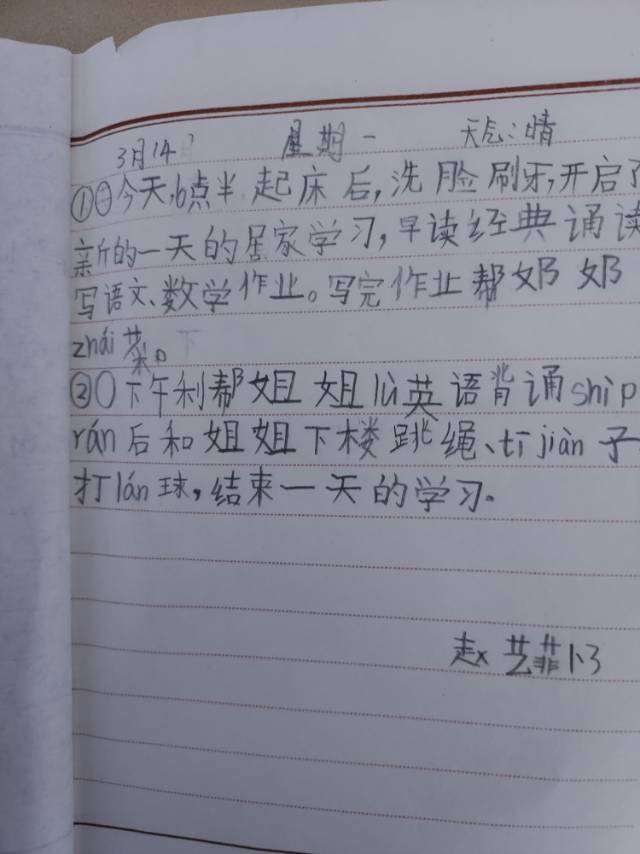 3月14日 星期一 天气:晴
①今天,6点半起床后,洗脸刷牙,开启了
新的一天的居家学习,早读经典诵读
写语文、数学作业。写完作业帮奶奶
zhái菜。
②下午利帮姐姐lù英语背诵ship
rán后和姐姐下楼跳绳、tījiàn子
打lán球,结束一天的学习。
赵艺菲1、3